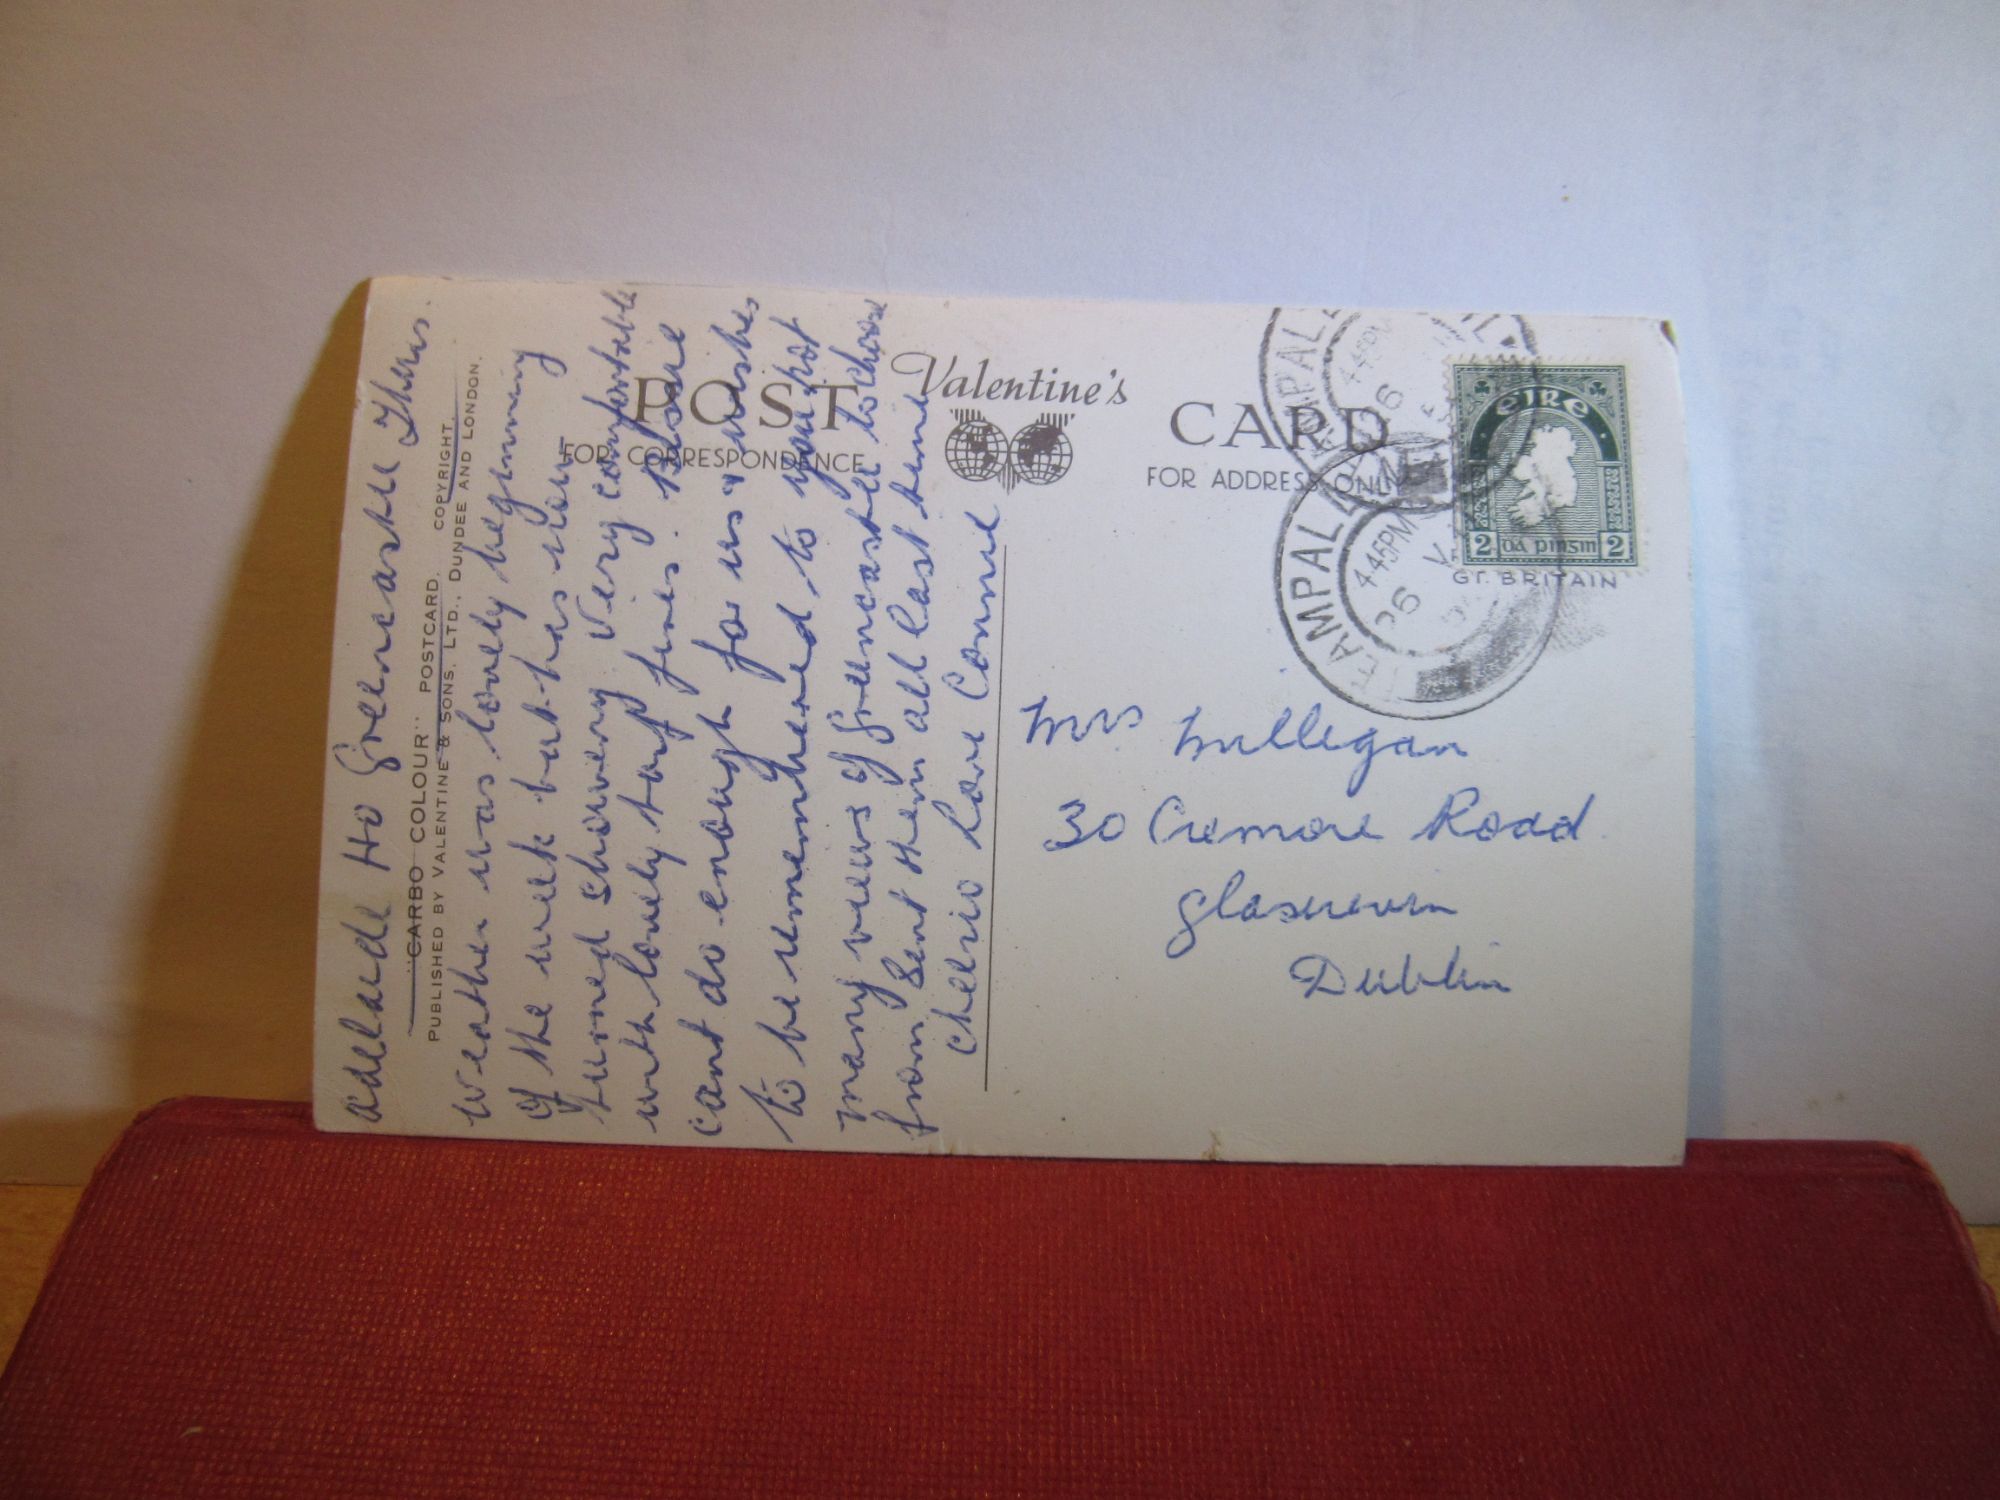 Adelaide Ho Greencastle Thurs.
Weather was lovely beginning
of the week but has now
turned showery Very comfortable
with lovely turf fires. Bessie
cant do enough for us & wishes
to be remembered to you not
many views of Greencastle to choose
from Sent them all last time
Cheerio Love Connie
"CARBO COLOUR" POSTCARD. COPYRIGHT
PUBLISHED BY VALENTINE & SONS, LTD., DUNDEE AND LONDON.
POST CARD
Valentine's
FOR CORRESPONDENCE
FOR ADDRESS ONLY
EIRE
2 DÁ PINSIN 2
GT. BRITAIN
445PM
26 V
445PM
26 V
Mrs Mulligan
30 Cremore Road
Glasnevin
Dublin